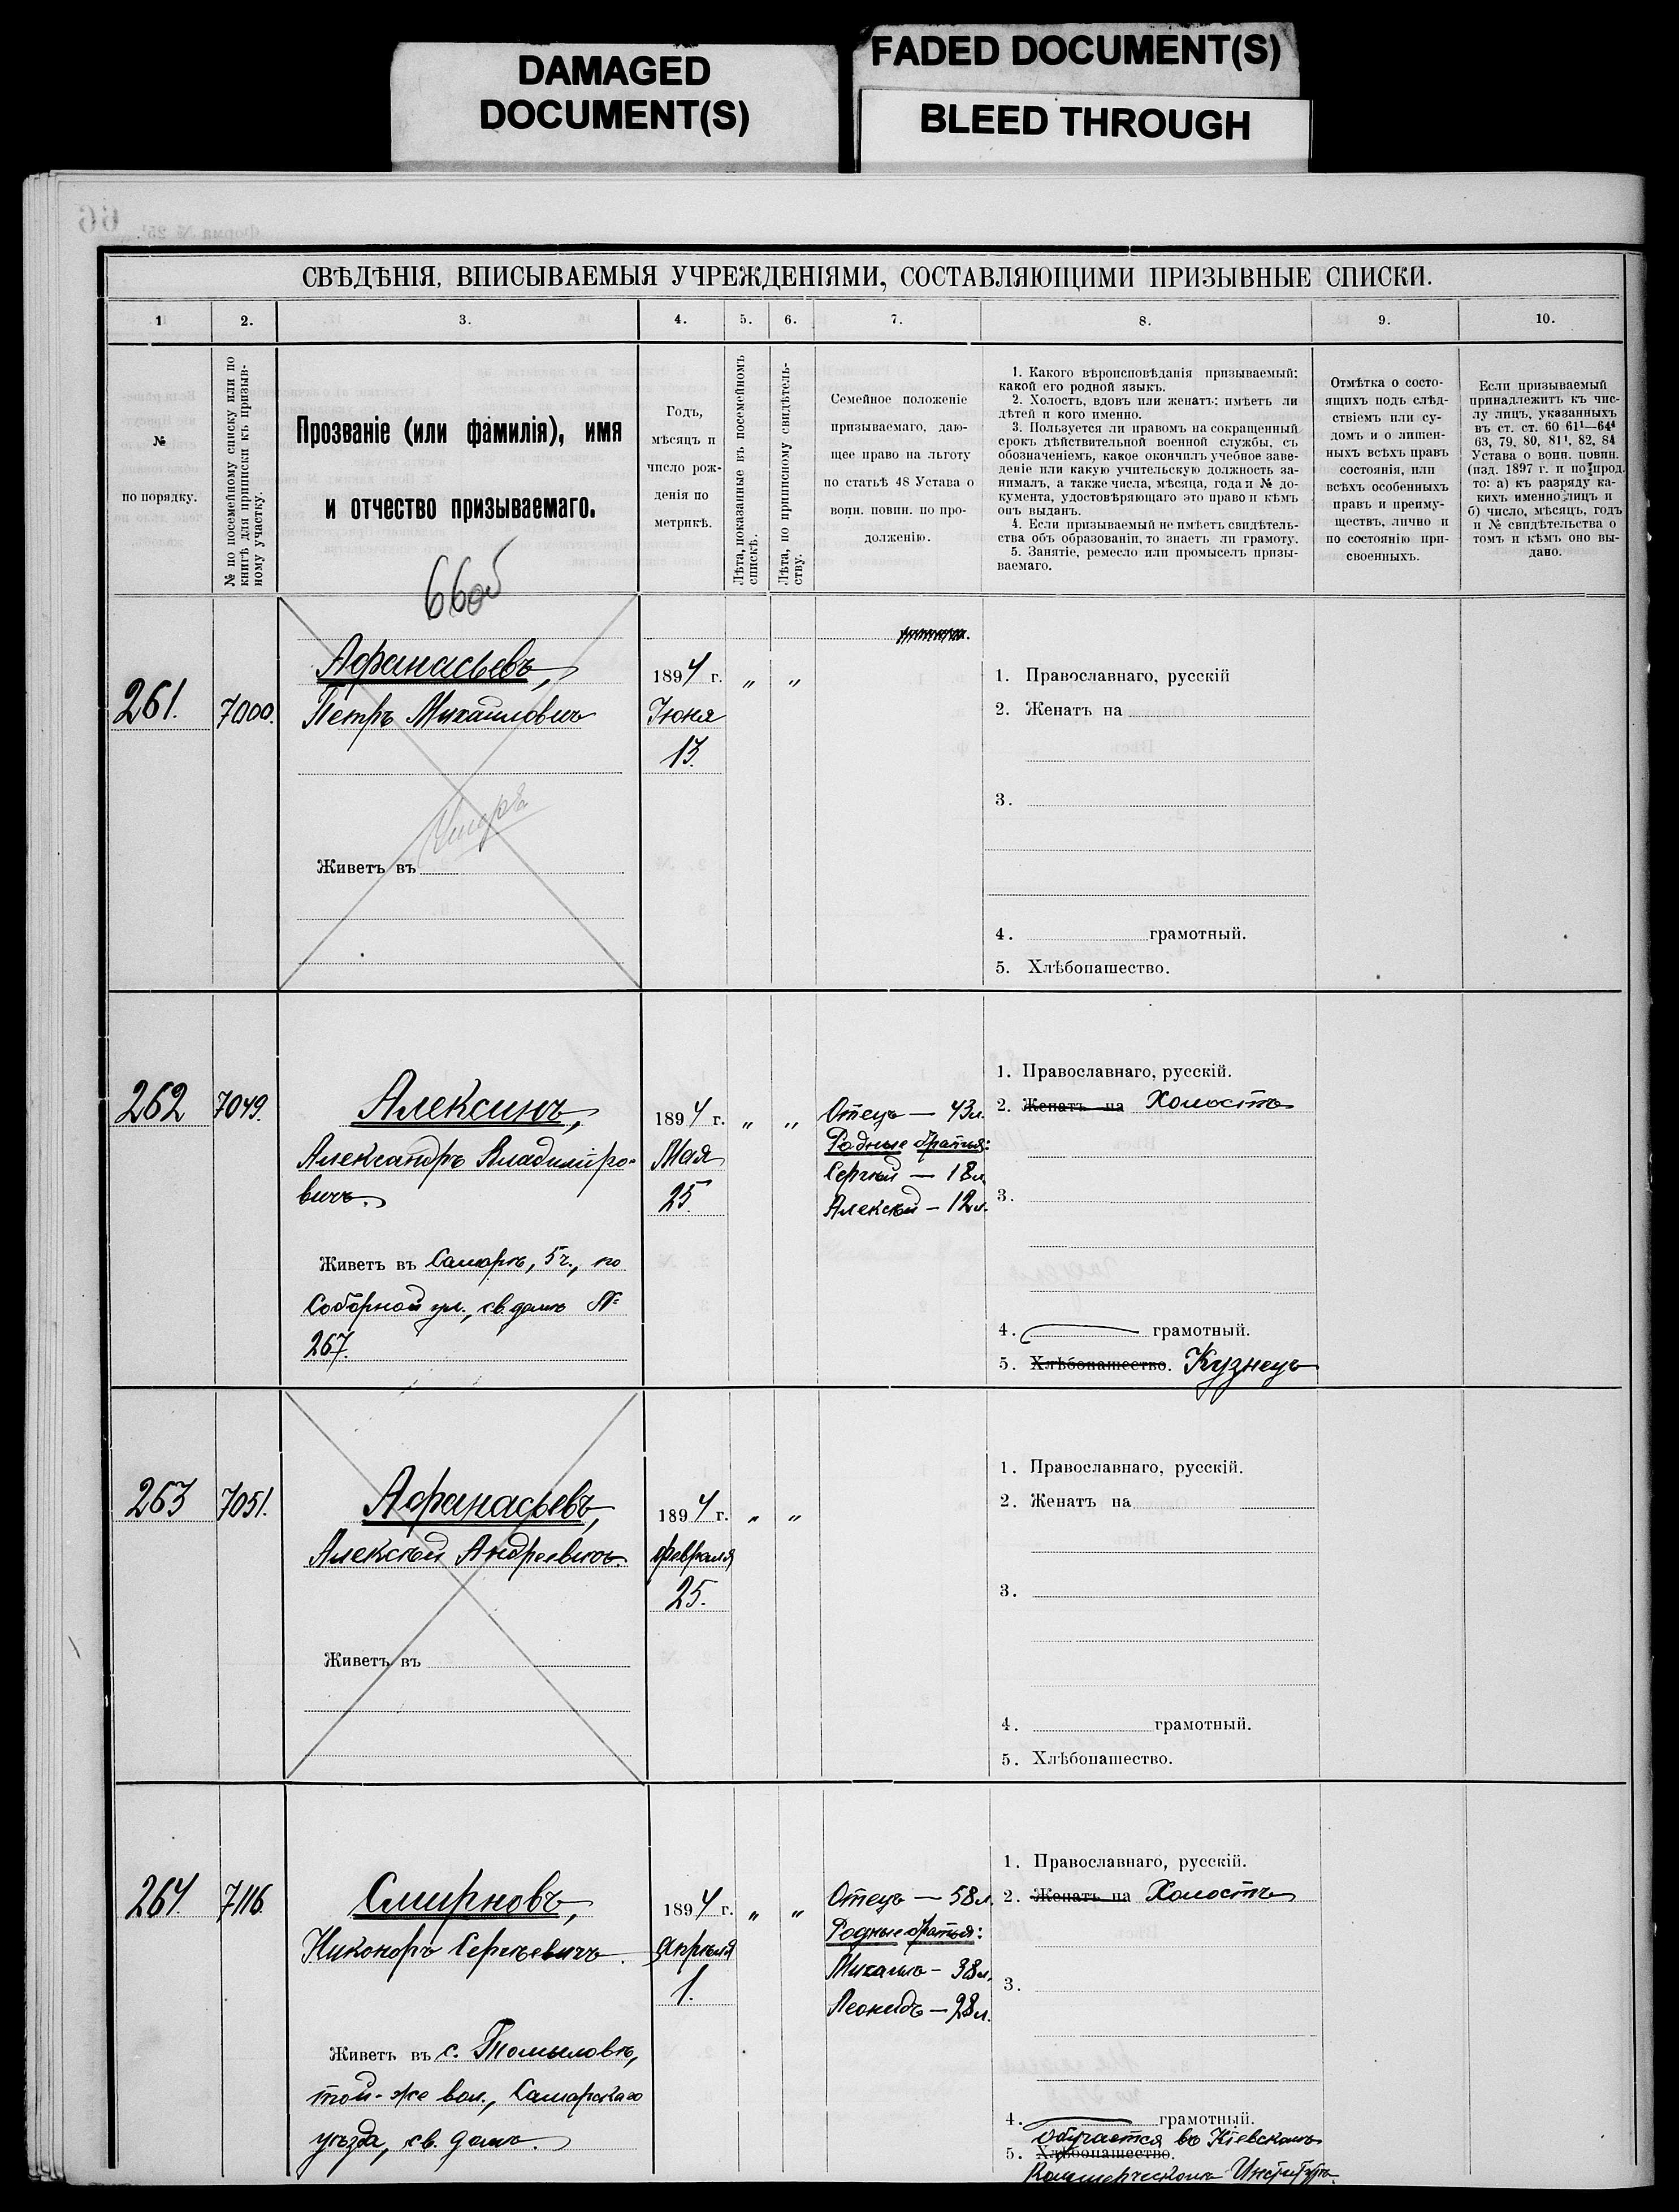 DAMAGED
DOCUMENT(S)
FADED DOCUMENT(S)
BLEED THROUGH
66
Форма № 25
СВѢДѢНІЯ, ВПИСЫВАЕМЫЯ УЧРЕЖДЕНІЯМИ, СОСТАВЛЯЮЩИМИ ПРИЗЫВНЫЕ СПИСКИ.
1 2. 3. 4. 5. 6. 7. 8. 9. 10.
№
по порядку.
№ по посемейному списку или по
книгѣ для приписки къ призыв-
ному участку.
Прозваніе (или фамилія), имя
и отчество призываемаго.
Годъ,
мѣсяцъ и
число рож-
денія по
метрикѣ.
Лѣта, показанные въ посемейномъ
спискѣ.
Лѣта, по приписному свидѣтель-
ству.
Семейное положеніе
призываемаго, даю-
щее право на льготу
по статьѣ 48 Устава о
воин. повин. по про-
долженію.
1. Какого вѣроисповѣданія призываемый;
какой его родной языкъ.
2. Холостъ, вдовъ или женатъ: имѣетъ ли
дѣтей и кого именно.
3. Пользуется ли правомъ на сокращенный
срокъ дѣйствительной военной службы, съ
обозначеніемъ, какое окончилъ учебное заве-
деніе или какую учительскую должность за-
нималъ, а также числа, мѣсяца, года и № до-
кумента, удостовѣряющаго это право и кѣмъ
онъ выданъ.
4. Если призываемый не имѣетъ свидѣтель-
ства объ образованіи, то знаетъ ли грамоту.
5. Занятіе, ремесло или промыселъ призы-
ваемаго.
Отмѣтка о состо-
ящихъ подъ слѣд-
ствіемъ или су-
домъ и о лишен-
ныхъ всѣхъ правъ
состоянія, или
всѣхъ особенныхъ
правъ и преиму-
ществъ, лично и
по состоянію при-
своенныхъ.
Если призываемый
принадлежитъ къ чис-
лу лицъ, указанныхъ
въ ст. ст. 60 61¹—64⁴
63, 79, 80, 81¹, 82, 84
Устава о воин. повин.
(изд. 1897 г. и по прод.
то: а) къ разряду ка-
кихъ именно лицъ и
б) число, мѣсяцъ, годъ
и № свидѣтельства о
томъ и кѣмъ оно вы-
дано.
66об
261. 7000.
Афанасьевъ,
Петръ Михайловичъ
Умеръ
Живетъ въ
1894 г. „ „
Іюня
13.
1. Православнаго, русскій
2. Женатъ на
3.
4. грамотный.
5. Хлѣбопашество.
262 7049.
Алексинъ,
Александръ Владиміро-
вичъ.
Живетъ въ Самарѣ, 5 ч., по
Соборной ул., св. домъ №
267.
1894 г. „ „
Мая
25.
Отецъ — 43 л.
Родные братья:
Сергѣй — 18 л.
Алексѣй — 12 л.
1. Православнаго, русскій.
2. Женатъ на Холостъ
3.
4. грамотный.
5. Хлѣбопашество. Кузнецъ
263 7051.
Афанасьевъ,
Алексѣй Андреевичъ.
Живетъ въ
1894 г. „ „
февраля
25.
1. Православнаго, русскій.
2. Женатъ на
3.
4. грамотный.
5. Хлѣбопашество.
264. 7116.
Смирновъ,
Никоноръ Сергѣевичъ.
Живетъ въ с. Томыловѣ,
той-же вол., Самарскаго
уѣзда, св. домъ.
1894 г. „ „
апрѣля
1.
Отецъ — 58 л.
Родные братья:
Михаилъ — 38 л.
Леонидъ — 28 л.
1. Православнаго, русскій.
2. Женатъ на Холостъ
3.
4. грамотный.
обучается въ Кіевскомъ
5. Хлѣбопашество.
Коммерческомъ Институтѣ.